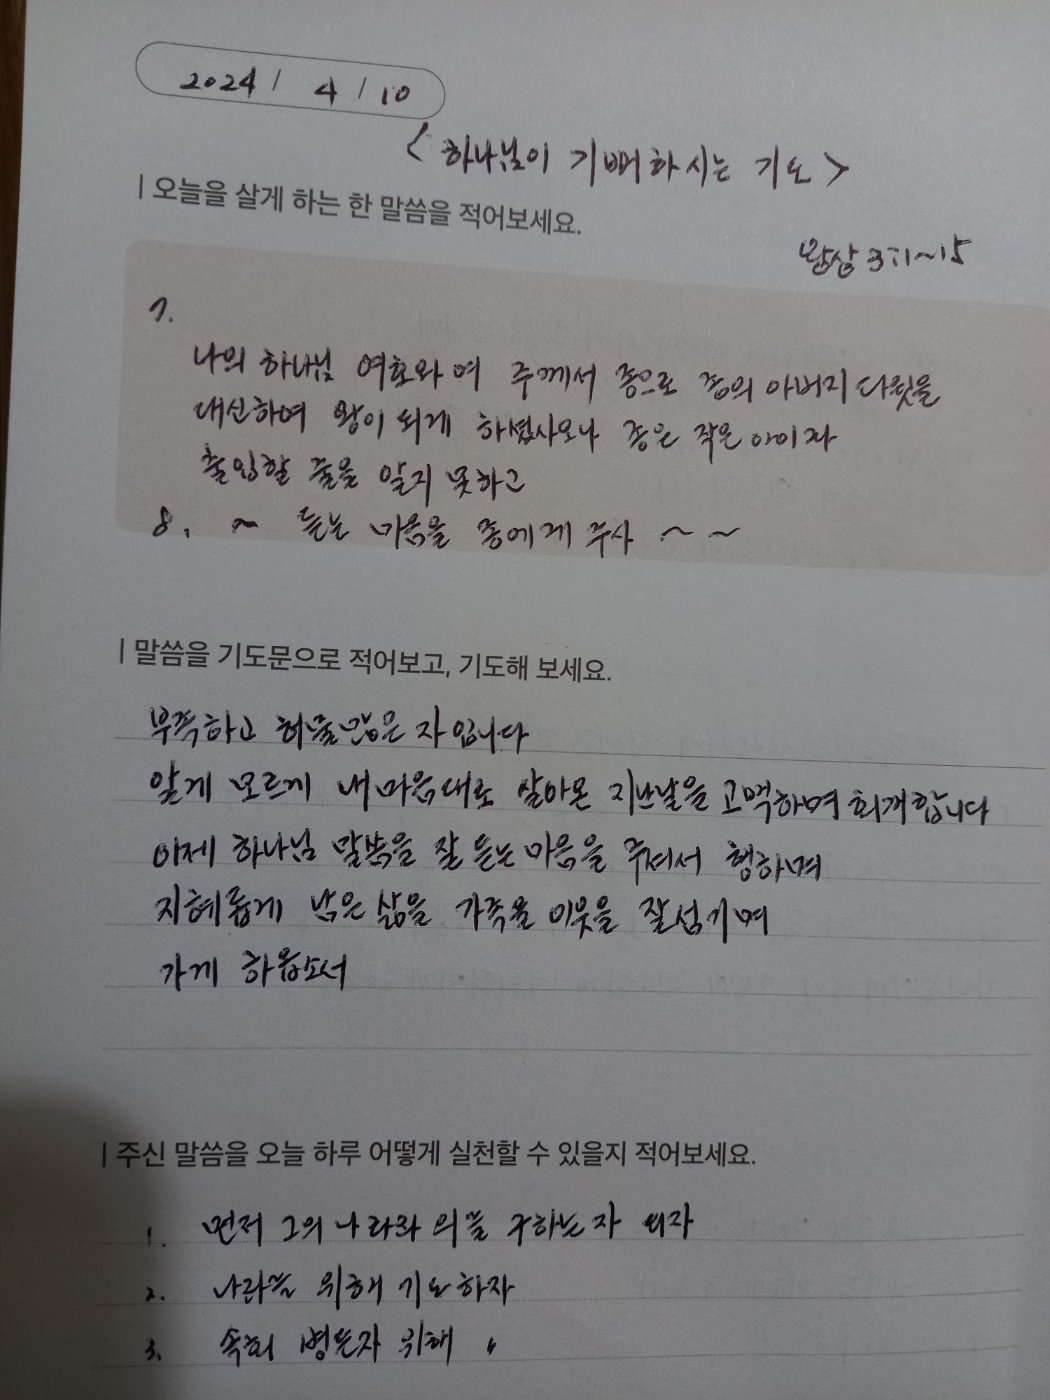 2024 / 4 / 10
< 하나님이 기뻐하시는 기도 >
| 오늘을 살게 하는 한 말씀을 적어보세요.
왕상 3:1~15
7.
나의 하나님 여호와여 주께서 종으로 종의 아버지 다윗을
대신하여 왕이 되게 하셨사오나 종은 작은 아이라
출입할 줄을 알지 못하고
8. ~ 듣는 마음을 종에게 주사 ~ ~
| 말씀을 기도문으로 적어보고, 기도해 보세요.
부족하고 허물많은 자입니다
알게 모르게 내 마음대로 살아온 지난날을 고백하며 회개합니다
이제 하나님 말씀을 잘 듣는 마음을 주셔서 행하며
지혜롭게 남은 삶을 가족을 이웃을 잘섬기며
가게 하옵소서
| 주신 말씀을 오늘 하루 어떻게 실천할 수 있을지 적어보세요.
1. 먼저 그의 나라와 의를 구하는 자 되자
2. 나라를 위해 기도하자
3. 속회 병든자 위해 〃